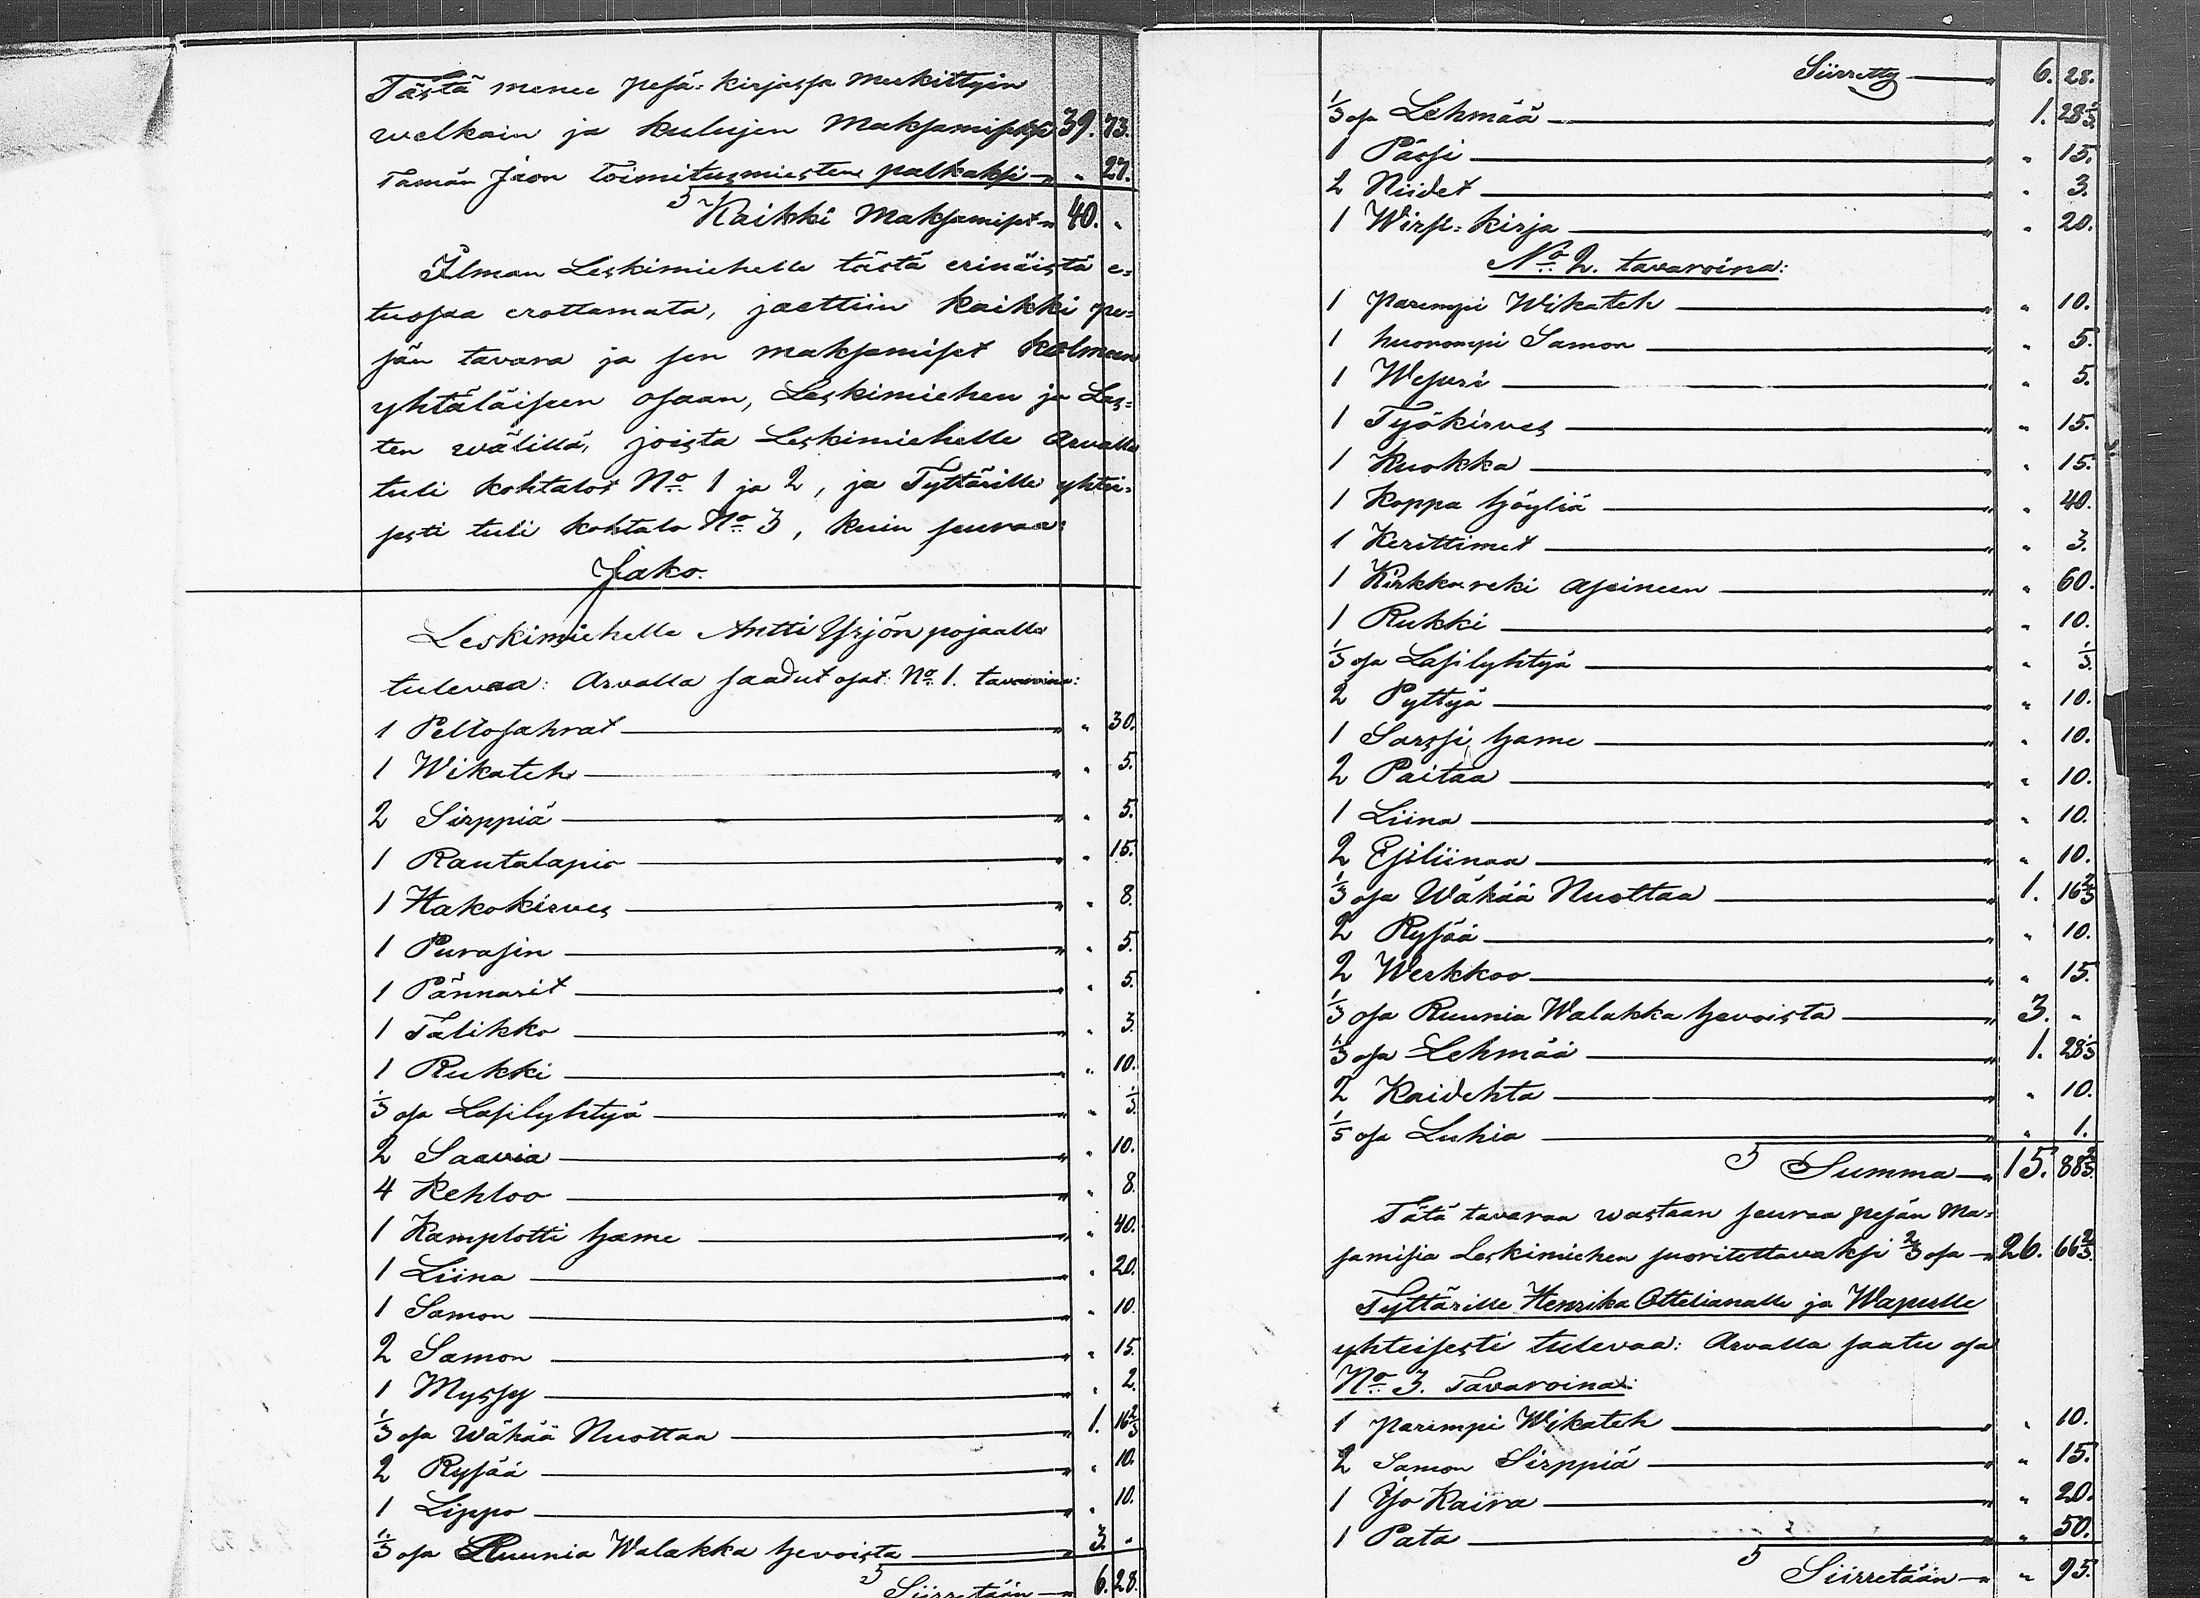 Tästä menee pesä-kirjassa merkittyin
welkain ja kulujen Maksamiseksi 39. 73.
Tämän Jaon toimitusmiesten palkaksi — " 27.
Kaikki Maksamiset " 40. "
Ilman Leskimiehelle tästä erinäistä e=
tuosaa erottamata, jaettiin kaikki pe=
sän tavara ja sen maksamiset kolmeen
yhtäläiseen osaan, Leskimiehen ja Las=
ten wälillä, joista Leskimiehelle Arvalla
tuli kohtalot No 1 ja 2, ja Tyttärille yhtei=
sesti tuli kohtalo No 3, kuin seuraa:
Jako.
Leskimiehelle Antti Yrjön pojaalle
tulevaa: Arvalla saadut osat: No 1. tavaroina:
1 Peltosahrat — " 30.
1 Wikateh — " 5.
2 Sirppiä — " 5.
1 Rautalapio — " 15.
1 Hakokirves — " 8.
1 Purasin — " 5.
1 Pännarit — " 5.
1 Talikko — " 3.
1 Rukki — " 10.
1/3 osa Lasilyhtyä — " 1/3.
2 Saavia — " 10.
4 Kehloo — " 8.
1 Kamplotti hame — " 40.
1 Liina — " 20.
1 Samon — " 10.
2 Samon — " 15.
1 Myssy — " 2.
1/3 osa Wähää Nuottaa — 1. 16 2/3
2 Rysää — " 10.
1 Lippo — " 10.
1/3 osa Ruunia Walakka hevoista — 3. "
Siirretään — 6. 28.
Siirretty — 6. 28.
1/3 osa Lehmää — 1. 28 1/3
1 Pässi — " 15.
2 Niidet — " 3.
1 Wirsi-kirja — " 20.
No 2. tavaroina:
1 parempi Wikateh — " 10.
1 huonompi Samon — " 5.
1 Wesuri — " 5.
1 Työkirves — " 15.
1 Kuokka — " 15.
1 Koppa höyliä — " 40.
1 Kerittimet — " 3.
1 Kirkko reki Aseineen — " 60.
1 Rukki — " 10.
1/3 osa Lasilyhtyä — " 1/3.
2 Pyttyä — " 10.
1 Sarssi hame — " 10.
2 Paitaa — " 10.
1 Liina — " 10.
2 Esiliinaa — " 10.
1/3 osa Wähää Nuottaa — 1. 16 2/3
2 Rysää — " 10.
2 Werkkoo — " 15.
1/3 osa Ruunia Walakka hevoista — 3. "
1/3 osa Lehmää — 1. 28 1/3
2 Kaidehta — " 10.
1/5 osa Luhia — " 1.
Summa — 15. 88 2/3.
Tätä tavaraa wastaan seuraa pesän Ma=
samisia Leskimiehen suoritettavaksi 2/3 osa — 26. 66 2/3.
Tyttärille Henrika Ottelianalle ja Wapulle
yhteisesti tulevaa: Arvalla saatu osa
No 3. Tavaroina:
1 parempi Wikateh — " 10.
2 Samon Sirppiä — " 15.
1 Iso Kaira — " 20.
1 Pata — " 50.
Siirretään — " 95.